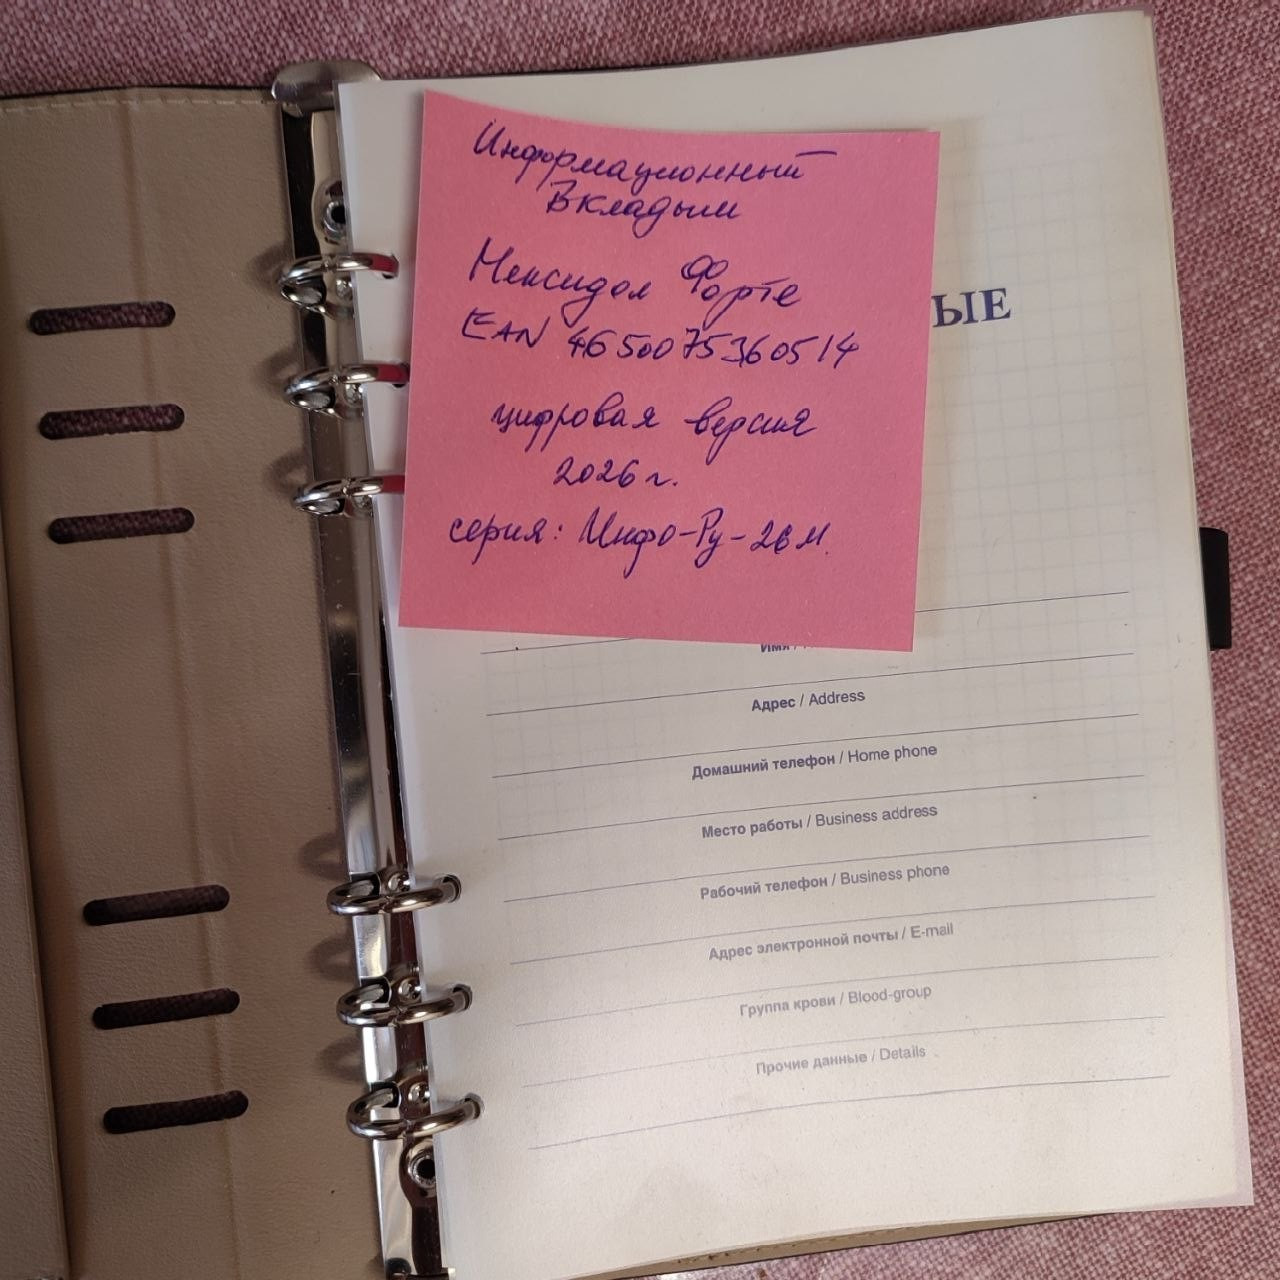 Информационный
Вкладыш
Мексидол Форте
EAN 4650075360514
цифровая версия
2026 г.
серия: Инфо-Ру-26М
ЫЕ
Имя /
Адрес / Address
Домашний телефон / Home phone
Место работы / Business address
Рабочий телефон / Business phone
Адрес электронной почты / E-mail
Группа крови / Blood-group
Прочие данные / Details